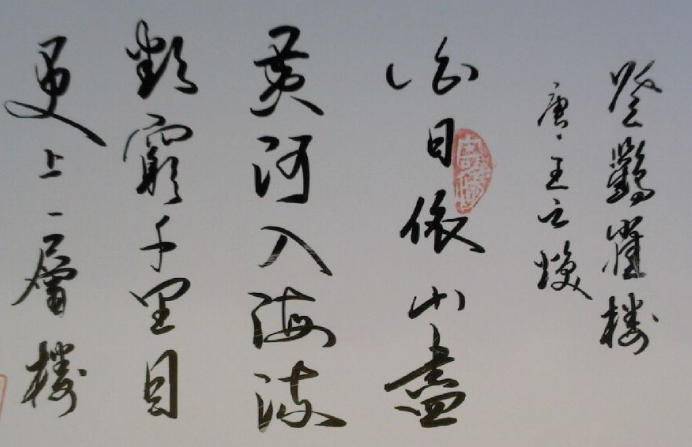 登鸛雀楼
唐·王之煥
白日依山盡
黄河入海流
欲窮千里目
更上一層楼